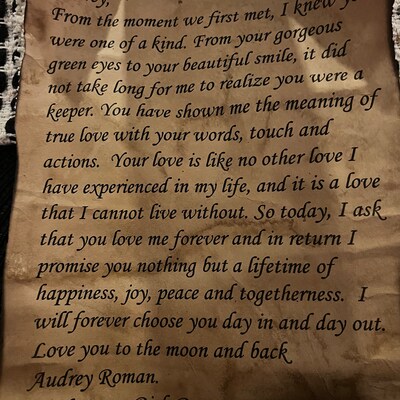 From the moment we first met, I knew
were one of a kind. From your gorgeous
green eyes to your beautiful smile, it did
not take long for me to realize you were a
keeper. You have shown me the meaning of
true love with your words, touch and
actions. Your love is like no other love I
have experienced in my life, and it is a love
that I cannot live without. So today, I ask
that you love me forever and in return I
promise you nothing but a lifetime of
happiness, joy, peace and togetherness. I
will forever choose you day in and day out.
Love you to the moon and back
Audrey Roman.